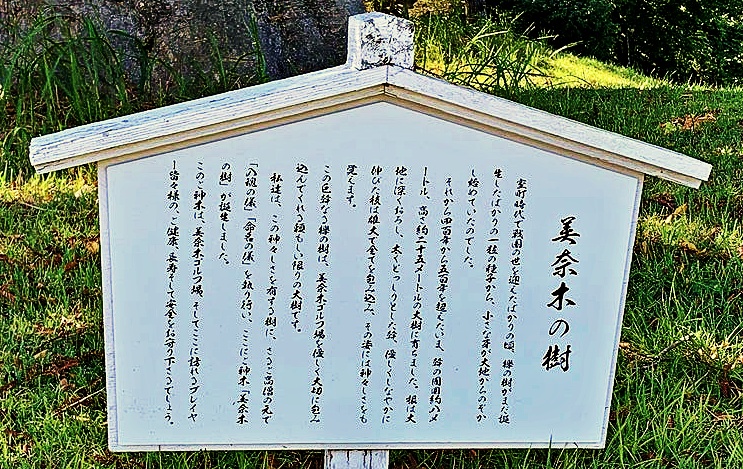 美奈木の樹
室町時代、戦国の世を迎えたばかりの頃、欅の樹がまだ誕
生したばかりの一粒の種子から、小さな芽が大地からのぞか
し始めていたのでした。
それから四百年から五百年を超えたいま、幹の周囲約八メ
ートル、高さ約二十五メートルの大樹に育ちました。根は大
地に深くおろし、太くどっしりとした幹、優しくしなやかに
伸びた枝は雄大で全てを包み込み、その姿には神々しさをも
覚えます。
この巨大なる欅の樹は、美奈木ゴルフ場を優しく大切に包み
込んでくれる頼もしい限りの大樹です。
私達は、この神々しさを有する樹に、さるご高僧の元で
「入魂の儀」「命名の儀」を執り行い、ここにご神木「美奈木
の樹」が誕生しました。
このご神木は、美奈木ゴルフ場、そしてここに訪れるプレイヤ
ー皆々様の、ご健康、長寿そして安全をお守り下さるでしょう。